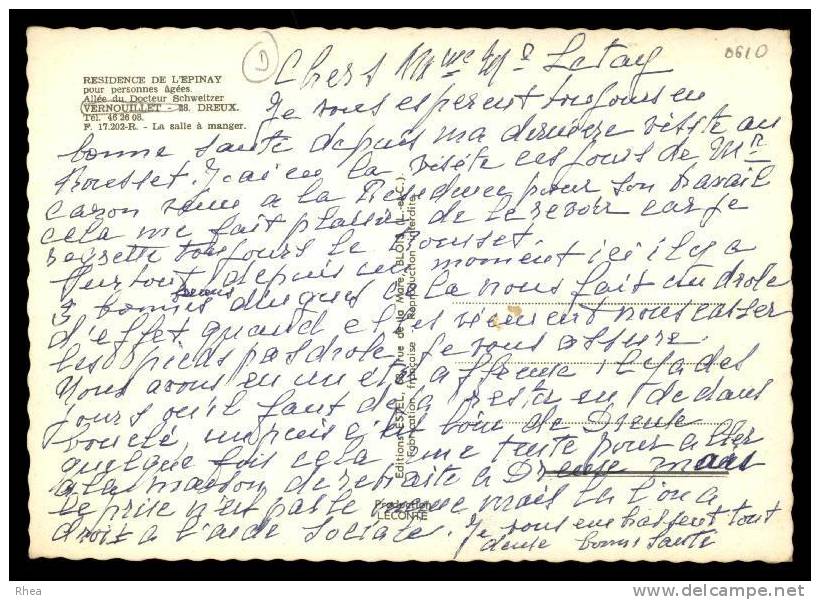 RESIDENCE DE L'EPINAY
pour personnes âgées.
Allée du Docteur Schweitzer
VERNOUILLET - 28. DREUX.
Tél. 46 26 08.
F. 17.202-R. - La salle à manger.
D
0610
Chers Mme Mr Letay
Je vous esperent toujours en
bonne santé depuis ma derniere visite au
Rousset. J'ai eu la visite ces jours de Mr
Caron venu a la Residence pour son travail
cela me fait plaisir de le revoir car je
regrette toujours le Rousset
surtout depuis un moment ici il y a
3 bonnes dingues cela nous fait un drole
d'effet quand elles viennent nous casser
les pieds pas drole je vous assure
Nous avons eu un été affreuse il y a des
jours qu'il faut de la resté au dedans
bouclé, un puis c'est loin de Dreux
quelque fois cela me tente pour aller
a la maison de retraite a Dreux mais
le prise n'est pas le meme mais la l'on a
droit a l'aide Sociale. Je vous embrassent tout
deuse bonne Santé
Editions ESTEL, rue de la Mare, BLOIS (L.-et-C.).
Fabrication française - Reproduction interdite
Production
LECONTE
Rhea
www.delcampe.net